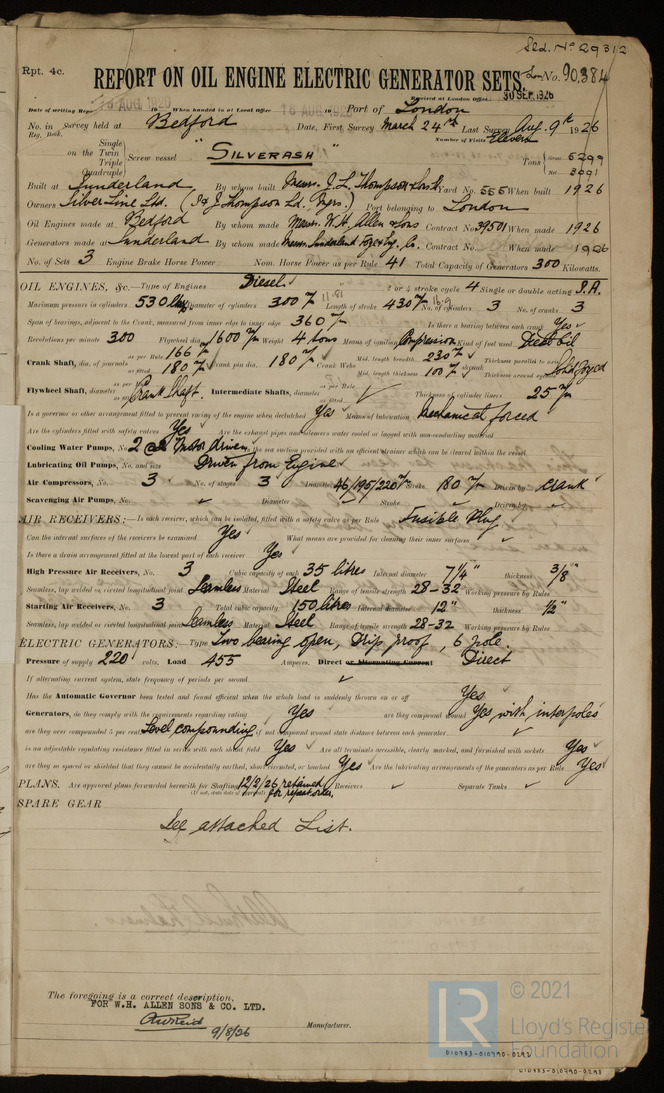 Sld. No 29312
Rpt. 4c.
REPORT ON OIL ENGINE ELECTRIC GENERATOR SETS. Ln No. 90,384
Received at London Office 30 SEP. 1926
Date of writing Report 18 AUG 1926 When handed in at Local Office 18 AUG 1926 Port of London
No. in Reg. Book. Survey held at Bedford Date, First Survey March 24th Last Survey Aug. 9th 1926
Number of Visits Eleven
on the Single Twin Triple Quadruple Screw vessel "SILVERASH" Tons Gross 5299 Net 3091
Built at Sunderland By whom built Messrs. J. L. Thompson & Sons Ld. Yard No. 555 When built 1926
Owners Silver Line Ltd. (S & J Thompson Ld. Mgrs.) Port belonging to London
Oil Engines made at Bedford By whom made Messrs. W. H. Allen & Sons Contract No 39501 When made 1926
Generators made at Sunderland By whom made Messrs. Sunderland Forge & Eng. Co. Contract No. When made 1926
No. of Sets 3 Engine Brake Horse Power Nom. Horse Power as per Rule 41 Total Capacity of Generators 300 Kilowatts.
OIL ENGINES, &c.—Type of Engines Diesel 2 or 4 stroke cycle 4 Single or double acting S.A.
Maximum pressure in cylinders 530 lbs Diameter of cylinders 300 m/m 11.81 Length of stroke 430 m/m 16.9 No. of cylinders 3 No. of cranks 3
Span of bearings, adjacent to the Crank, measured from inner edge to inner edge 360 m/m Is there a bearing between each crank Yes
Revolutions per minute 300 Flywheel dia. 1600 m/m Weight 4 tons Means of ignition Compression Kind of fuel used Diesel Oil
Crank Shaft, dia. of journals as per Rule 166 m/m as fitted 180 m/m Crank pin dia. 180 m/m Crank Webs Mid. length breadth 230 m/m Mid. length thickness 100 m/m shrunk Thickness parallel to axis Thickness around eye Solid Forged
Flywheel Shaft, diameter as per Rule as fitted Crank Shaft. Intermediate Shafts, diameter as per Rule as fitted Thickness of cylinder liners 25 m/m
Is a governor or other arrangement fitted to prevent racing of the engine when declutched Yes Means of lubrication Mechanical forced
Are the cylinders fitted with safety valves Yes Are the exhaust pipes and silencers water cooled or lagged with non-conducting material
Cooling Water Pumps, No. 2 Motor driven. the sea suction provided with an efficient strainer which can be cleared within the vessel
Lubricating Oil Pumps, No. and size Driven from Engine
Air Compressors, No. 3 No. of stages 3 Diameters 46/195/220 m/m Stroke 180 m/m Driven by Crank
Scavenging Air Pumps, No. Diameter Stroke Driven by
AIR RECEIVERS:—Is each receiver, which can be isolated, fitted with a safety valve as per Rule Fusible Plug
Can the internal surfaces of the receivers be examined Yes What means are provided for cleaning their inner surfaces
Is there a drain arrangement fitted at the lowest part of each receiver Yes
High Pressure Air Receivers, No. 3 Cubic capacity of each 35 litres Internal diameter 7 1/4" thickness 3/8"
Seamless, lap welded or riveted longitudinal joint Seamless Material Steel Range of tensile strength 28-32 Working pressure by Rules
Starting Air Receivers, No. 3 Total cubic capacity 150 litres Internal diameter 12" thickness 1/2"
Seamless, lap welded or riveted longitudinal joint Seamless Material Steel Range of tensile strength 28-32 Working pressure by Rules
ELECTRIC GENERATORS:—Type Two bearing open, Drip proof, 6 pole.
Pressure of supply 220 volts. Load 455 Amperes. Direct or Alternating Current Direct
If alternating current system, state frequency of periods per second
Has the Automatic Governor been tested and found efficient when the whole load is suddenly thrown on or off Yes
Generators, do they comply with the requirements regarding rating Yes are they compound wound Yes with interpoles
are they over compounded 5 per cent Level compounding if not compound wound state distance between each generator
is an adjustable regulating resistance fitted in series with each shunt field Yes Are all terminals accessible, clearly marked, and furnished with sockets Yes
are they so spaced or shielded that they cannot be accidentally earthed, short circuited, or touched Yes Are the lubricating arrangements of the generators as per Rule Yes
PLANS. Are approved plans forwarded herewith for Shafting 12/2/26 retained for repeat order. Receivers Separate Tanks
(If not, state date of approval)
SPARE GEAR
See attached List.
The foregoing is a correct description,
FOR W.H. ALLEN SONS & CO. LTD.
9/8/26 Manufacturer.
LR © 2021
Lloyd's Register
Foundation
010783-010790-0292
010783-010790-0293